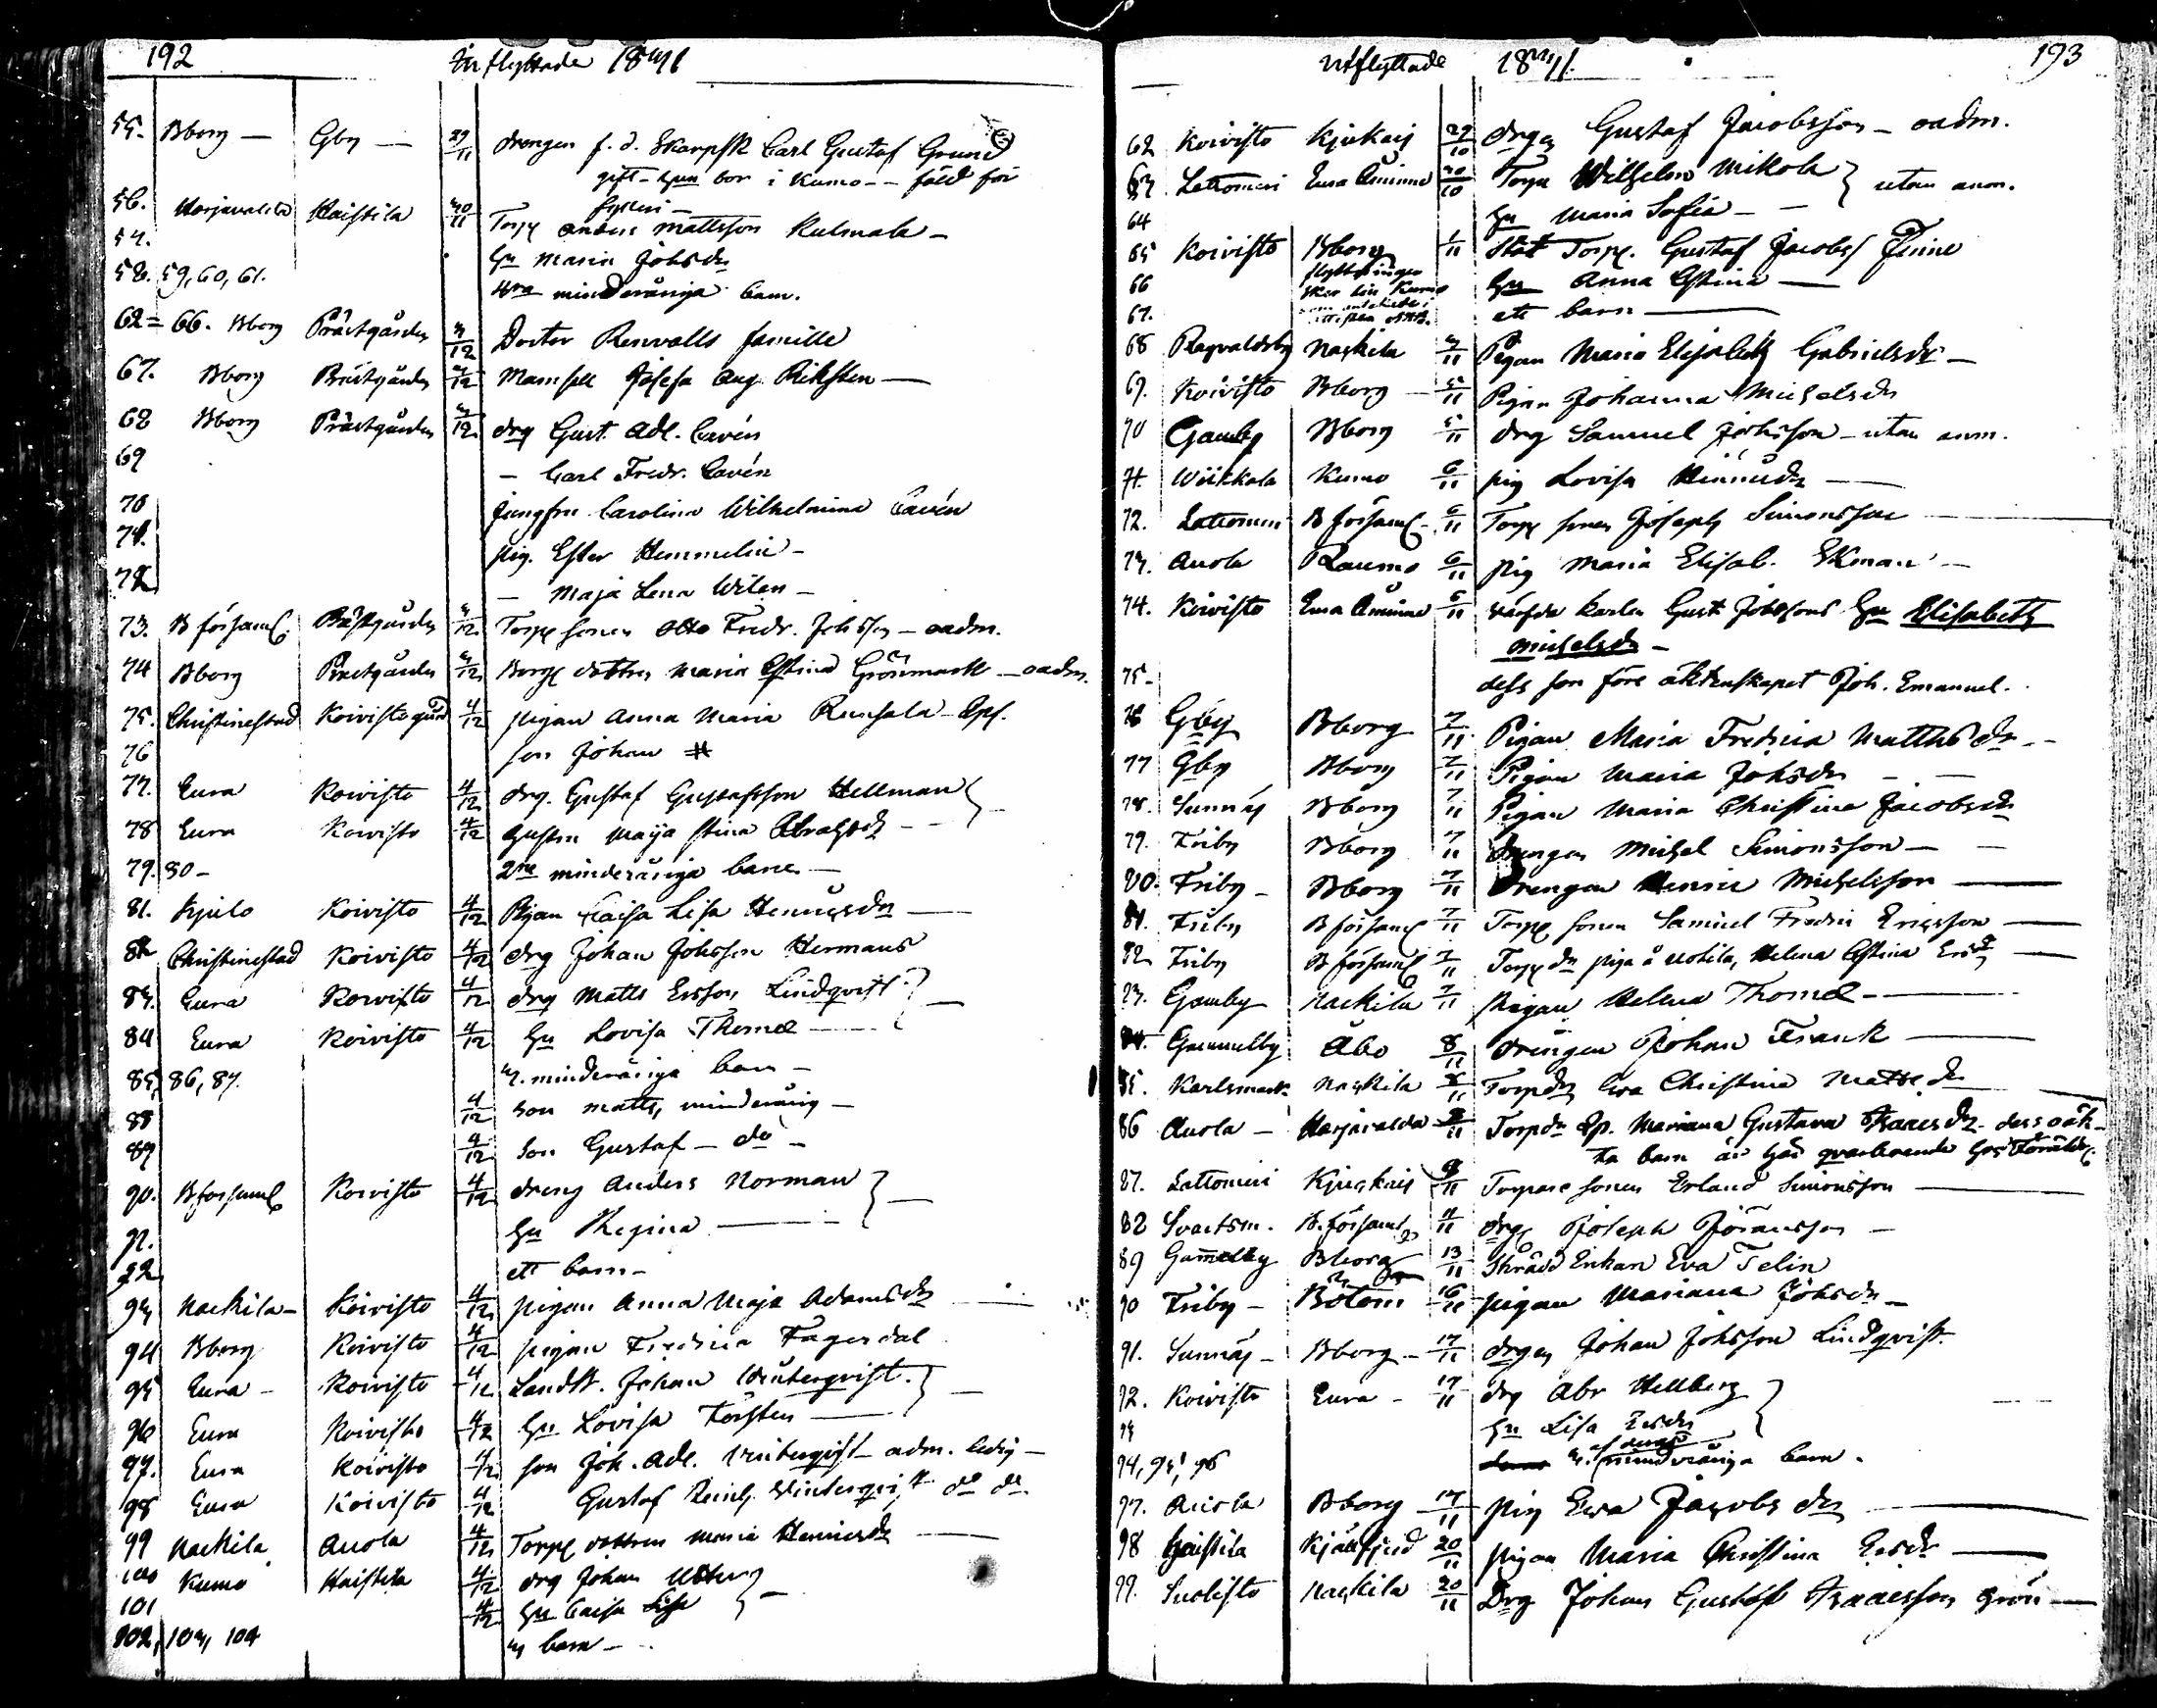 192 Inflyttade
55. Bborg — Gby — 29/11 drengen f. d. Skarpsk Carl Gustaf Grund
gift – hun bor i Kumo –– fäld för
fylleri –
56. Harjavalda Haistila 30/11 Torp Anders Mattsson Kulmala –
57. Hu Maria Johsdr
58. 59, 60, 61. 4ra minderåriga barn.
62 = 66. Bborg Prästgården 3/12 Doctor Renvalls famille
67. Bborg Prästgården 3/12 Mamsell Josefa Aug. Riksten —
68 Bborg Prästgården 3/12 drg Gust. Adl. Cavén
69 – Carl Fredr. Cavén
70 Jungfru Carolina Wilhelmina Cavén
71. pig. Ester Hemmelin –
72 – Maja Lena Wilen –
73. B församl Prästgården 3/12 Torp sonen Otto Fredr. Johsson – oadm.
74 Bborg Prästgården 3/12 Borg dottren Maria Stina Grönmark – oadm.
75. Christinestad Koivistogård 4/12 pigan Anna Maria Runsala
76 son Johan #
77. Eura Koivisto 4/12 drg. Gustaf Gustafsson Hellman
78 Eura Koivisto 4/12 hustru Maija Stina Abrahsdr –
79. 80 – 2ne minderåriga barn –
81. Kjulo Koivisto 4/12 Pigan Caisa Lisa Henricsdr —
82 Christinestad Koivisto 4/12 drg Johan Johsson Hermans
83. Eura Koivisto 4/12 drg Matts Ersson Lindqvist
84 Eura Koivisto 4/12 Hu Lovisa Thomæ —
85, 86, 87. 3. minderåriga barn –
88 4/12 son Matts, minderårig –
89 4/12 son Gustaf – do –
90. B församl Koivisto 4/12 dreng Anders Norman
91. Hu Regina —
92 ett barn –
93 Nackila – Koivisto 4/12 pigan Anna Maja Adamsdr
94 Bborg Koivisto 4/12 pigan Fredrica Fagerdal
95 Eura – Koivisto 4/12 Landb. Johan Winterqvist.
96 Eura Koivisto 4/12 Hu Lovisa Törsten —
97. Eura Koivisto 4/12 son Joh. Adl. Winterqvist – adm. ledig –
98 Eura Koivisto 4/12 Gustaf Reinh. Winterqvist do do
99 Nackila Anola 4/12 Torp dottren Maria Henricsdr —
100 Kumo Haistila 4/12 drg Johan
101 4/12 Hu Caisa Lisa
102, 103, 104 3 barn –
Utflyttade 193
62 Koivisto Kjukais 29/10 drgn Gustaf Jacobsson – oadm.
63 Lattomeri Eura Åminne 30/10 Torp Wilhelm Mikola } utan anm.
64 Hu Maria Sofia –
65 Koivisto Bborg 1/11 Stat Torp. Gustaf Jacobss Finne
66 flyttningen sker till Kumo Hu Anna Stina —
67. ett barn —
68 Ragvaldsby Nackila 3/11 Pigan Maria Elisabeth Gabrielsdr –
69. Koivisto Bborg – 5/11 Pigan Johanna Michelsdr
70 Gamby Bborg 5/11 drg Samuel Johsson – utan anm.
71. Wiikkala Kumo 6/11 pig Lovisa Henricsdr —
72. Lattomeri B församl. 6/11 Torp sonen Joseph Simonsson
73. Anola Raumo 6/11 pig Maria Elisab. Ekman –
74. Koivisto Eura Åminne 6/11 värfda karlen Gust Johssons Hu Elisabeth
Michelsdr –
75 – dess son före äktenskapet Joh. Emanuel.
76 Gby Bborg 7/11 Pigan Maria Fredrica Matthsdr –
77 Gby Bborg 7/11 Pigan Maria Johsdr –
78. Sunnäs Bborg 7/11 Pigan Maria Christina Jacobsdr
79. Friby Bborg 7/11 Drengen Michel Simonsson –
80. Friby – Bborg 7/11 Drengen Henric Michelsson —
81. Friby B församl 7/11 Torp sonen Samuel Fredric Ericsson —
82 Friby B församl 7/11 Torp dr piga å Uotila, Helena Stina Ersdr —
83. Gamby Nackila 7/11 pigan Helena Thomæ —
84. Gammelby Åbo 8/11 drengen Johan Frank —
85. Karlsmark Nackila 8/11 Torpdr Eva Christina Mattsdr
86 Anola – Harjavalda 8/11 Torpdr Lp. Mariana Gustava Isaacsdr – dess oäk-
ta barn är här qvarboende hos Föräldr.
87. Lattomeri Kjuckais 9/11 Torpare sonen Erland Simonsson —
88 Svartsm. B. församl 11/11 drg Joseph Göransson –
89 Gammelby Bborg 13/11 Skrädd Enkan Eva Telin
90 Friby – Bötom 16/11 pigan Mariana Johsdr –
91. Sunnäs – Bborg – 17/11 drgen Johan Johsson Lindqvist
92. Koivisto Eura – 17/11 drg Abr Hellberg
93 Hu Lisa Ersdr
94, 95, 96 3. minderåriga barn.
97. Anola Bborg 17/11 pig Eva Jacobsdr —
98 Haistila 20/11 pigan Maria Christina Ersdr —
99. Suolisto Nackila 20/11 Drg Johan Gustaf Isaacsson Grön —